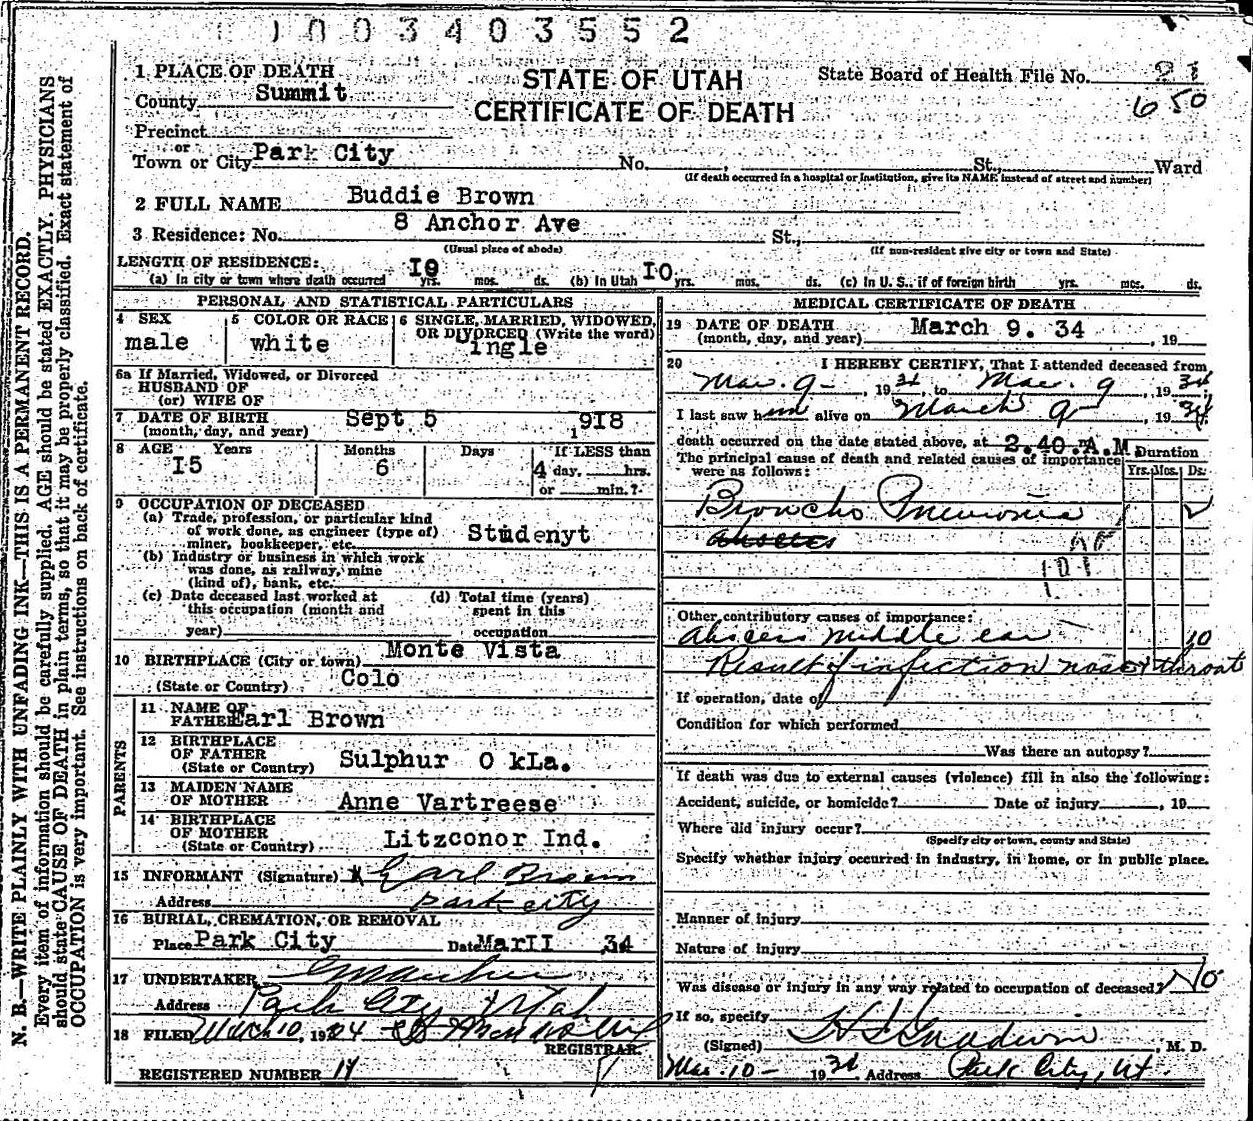 1003403552
1 PLACE OF DEATH
STATE OF UTAH
CERTIFICATE OF DEATH
State Board of Health File No. 21
650
County Summit
Precinct
or
Town or City Park City No. , St., Ward
(If death occurred in a hospital or institution, give its NAME instead of street and number)
2 FULL NAME Buddie Brown
3 Residence: No. 8 Anchor Ave St.,
(Usual place of abode) (If non-resident give city or town and State)
LENGTH OF RESIDENCE:
(a) In city or town where death occurred I0 yrs. mos. ds. (b) In Utah I0 yrs. mos. ds. (c) In U. S., if of foreign birth yrs. mos. ds.
PERSONAL AND STATISTICAL PARTICULARS
4 SEX male
5 COLOR OR RACE white
6 SINGLE, MARRIED, WIDOWED, OR DIVORCED (Write the word) ingle
6a If Married, Widowed, or Divorced
HUSBAND OF
(or) WIFE OF
7 DATE OF BIRTH Sept 5 1918
(month, day, and year)
8 AGE Years I5 Months 6 Days 4 If LESS than
day, hrs.
or min.?
9 OCCUPATION OF DECEASED
(a) Trade, profession, or particular kind
of work done, as engineer (type of)
miner, bookkeeper, etc. Studenyt
(b) Industry or business in which work
was done, as railway, mine
(kind of), bank, etc.
(c) Date deceased last worked at
this occupation (month and
year)
(d) Total time (years)
spent in this
occupation
10 BIRTHPLACE (City or town) Monte Vista
(State or Country) Colo
PARENTS
11 NAME OF
FATHER Earl Brown
12 BIRTHPLACE
OF FATHER
(State or Country) Sulphur O kLa.
13 MAIDEN NAME
OF MOTHER Anne Vartreese
14 BIRTHPLACE
OF MOTHER
(State or Country) Litzconor Ind.
15 INFORMANT (Signature) x Earl Brown
Address Park City
16 BURIAL, CREMATION, OR REMOVAL
Place Park City Date MarII ,34
17 UNDERTAKER
Address Park City Utah
18 FILED March 10, 1934
REGISTRAR.
REGISTERED NUMBER 14
MEDICAL CERTIFICATE OF DEATH
19 DATE OF DEATH March 9. 34
(month, day, and year) , 19
20 I HEREBY CERTIFY, That I attended deceased from
Mar. 9- , 1934, to Mar. 9 , 1934
I last saw him alive on March 9- , 1934
death occurred on the date stated above, at 2.40 A.M
The principal cause of death and related causes of importance
were as follows:
Duration
Yrs. Mos. Ds.
Broncho Pneumonia 2
abscess
107
Other contributory causes of importance:
Abscess middle ear 10
Result of infection nose & throat
If operation, date of
Condition for which performed
Was there an autopsy?
If death was due to external causes (violence) fill in also the following:
Accident, suicide, or homicide? Date of injury , 19
Where did injury occur?
(Specify city or town, county and State)
Specify whether injury occurred in industry, in home, or in public place.
Manner of injury
Nature of injury
Was disease or injury in any way related to occupation of deceased? No
If so, specify
(Signed) , M. D.
Mar. 10- 1934 Address Park City, Ut.
N. B.—WRITE PLAINLY WITH UNFADING INK—THIS IS A PERMANENT RECORD.
Every item of information should be carefully supplied. AGE should be stated EXACTLY. PHYSICIANS
should state CAUSE OF DEATH in plain terms, so that it may be properly classified. Exact statement of
OCCUPATION is very important. See instructions on back of certificate.